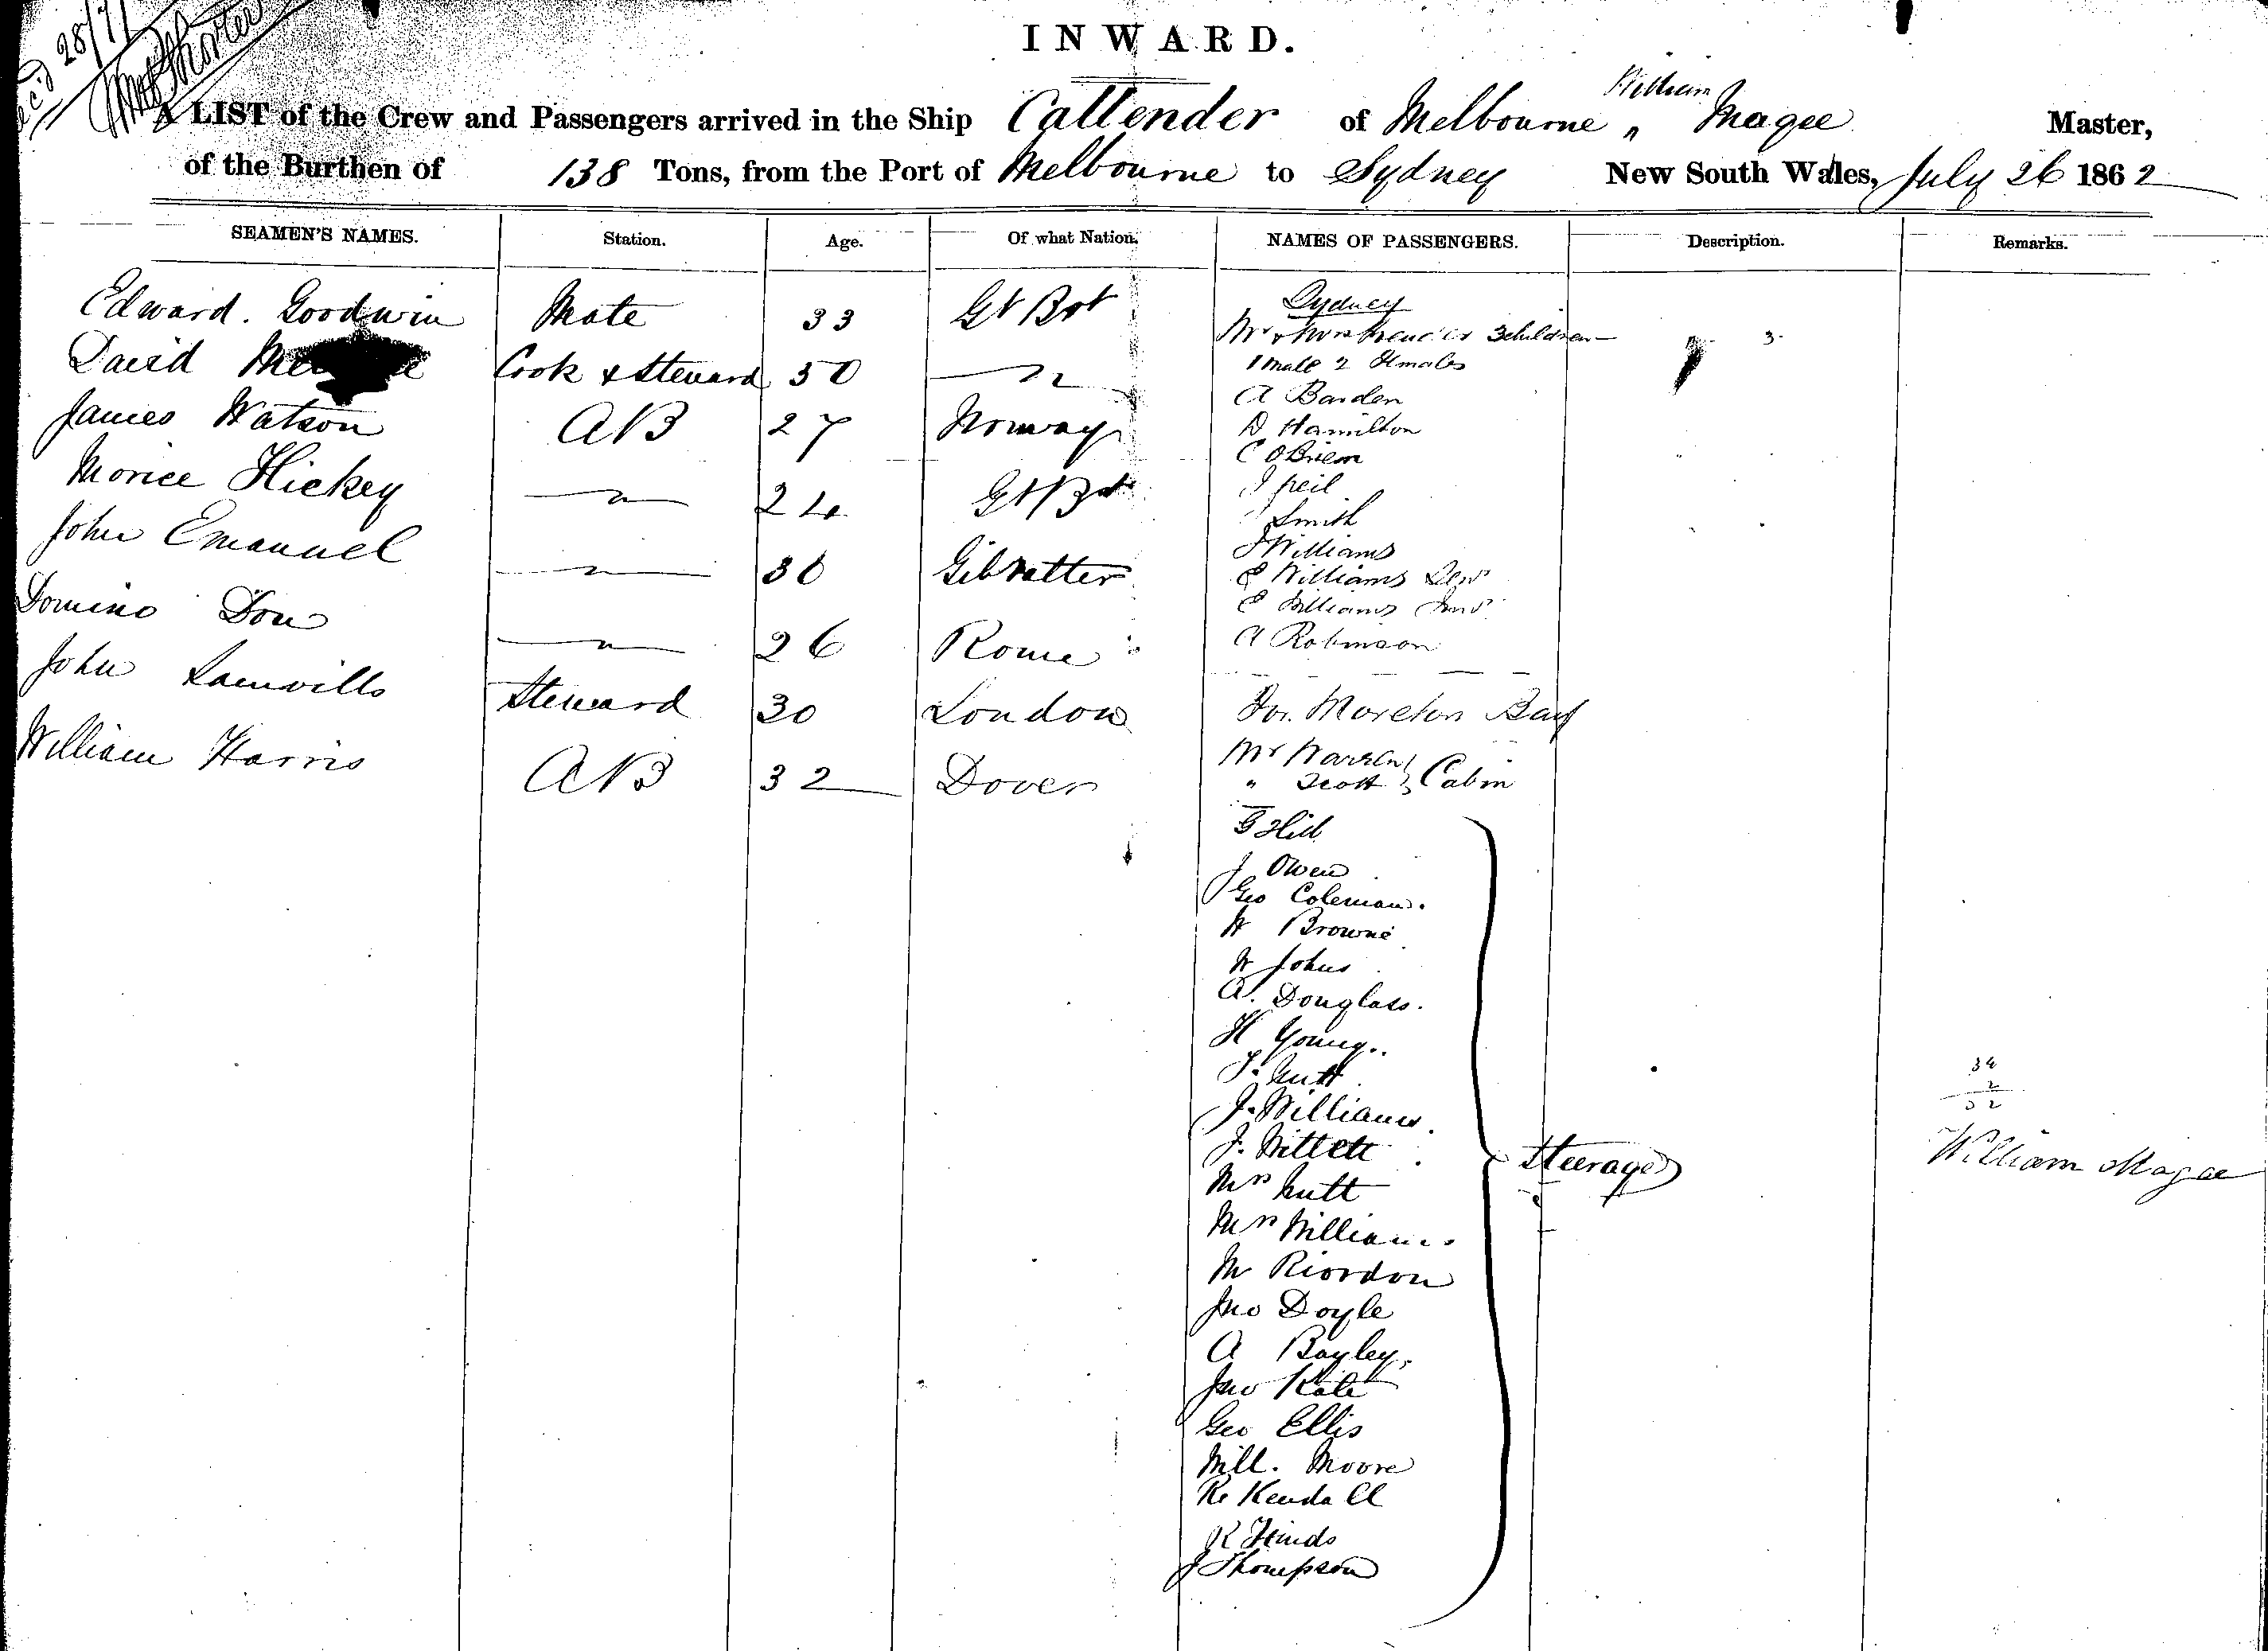 28/7
INWARD.
William
A LIST of the Crew and Passengers arrived in the Ship Callender of Melbourne " Magee Master,
of the Burthen of 138 Tons, from the Port of Melbourne to Sydney New South Wales, July 26 1862
SEAMEN'S NAMES. Station. Age. Of what Nation. NAMES OF PASSENGERS. Description. Remarks.
Edward. Goodwin Mate 33 Gt Brt
David Cook & Steward 50 "
James Watson AB 27 Norway
Morice Hickey " 24 Gt Brt
John Emanuel " 36 Gibratter
Domino Don " 26 Rome
John Steward 30 London
William Harris AB 32 Dover
Sydney
Mr & Mrs 3 children — 3.
1 male 2 females
A Barden
D Hamilton
C OBrien
J Neil
Smith
J Williams
E Williams Senr
E Williams Junr
A Robinson
For Moreton Bay
Mr Warren
" Scott } Cabin
G Hill
J Owen
Geo Coleman.
W Browne
W Johns
A. Douglass.
H Young.
J. Nutt
J. Williams.
J. Willett
Mrs Nutt
Mrs Williams
M Riordon
Jno Doyle
A Bayley.
Jno Kate
Geo Ellis
Will. Moore
R. Kendall
R Hinds
J Thompson
Steerage
34
2
32
William Magee